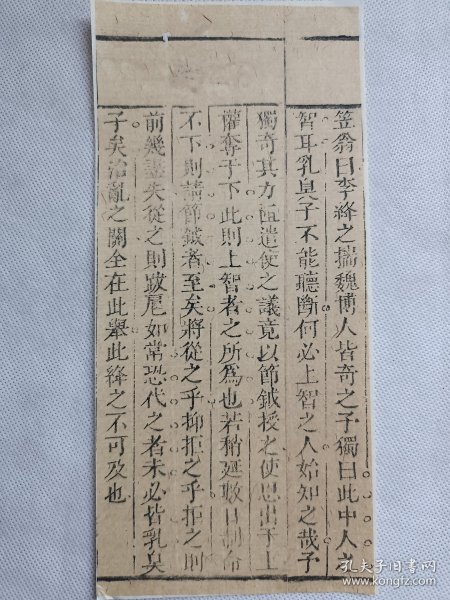 笠翁曰李絳之揣魏博人皆奇之予獨曰此中人之
智耳乳臭子不能聽斷何必上智之人始知之哉予
獨奇其力阻遣使之議竟以節鉞授之使恩出于上
權奪于下此則上智者之所為也若稍延數日制命
不下則請節鉞者至矣將從之乎抑拒之乎拒之則
前幾盡失從之則跋扈如常恐代之者未必皆乳臭
子矣治亂之關全在此舉此絳之不可及也
孔夫子旧书网
www.kongfz.com